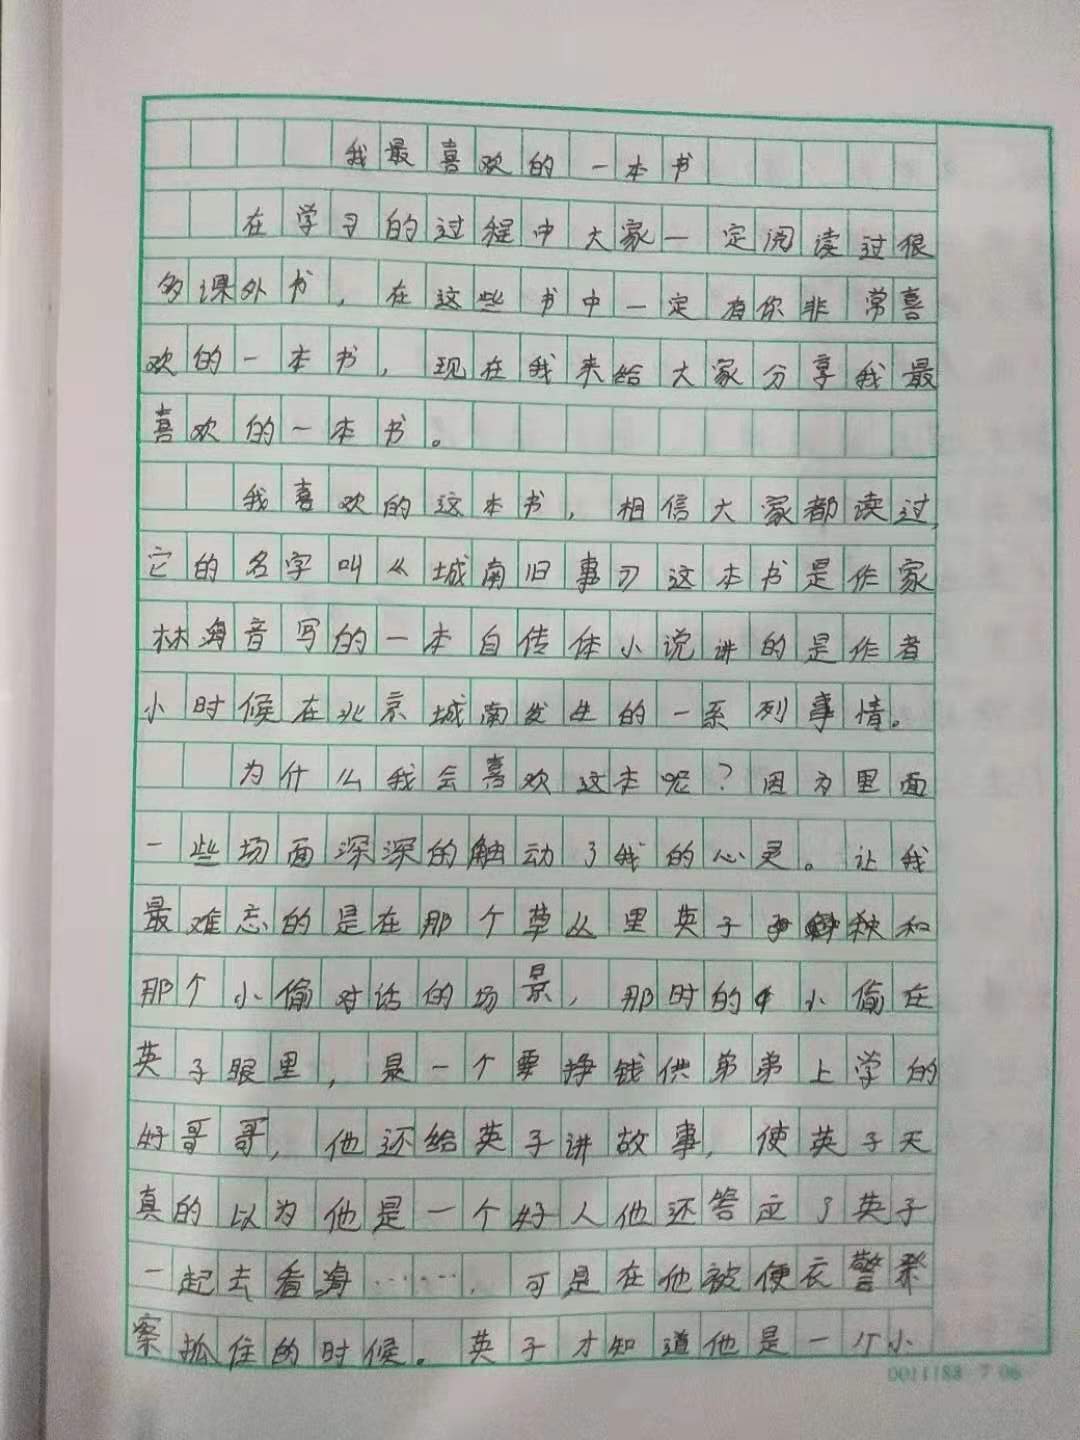 我最喜欢的一本书
在学习的过程中大家一定阅读过很
多课外书，在这些书中一定有你非常喜
欢的一本书，现在我来给大家分享我最
喜欢的一本书。
我喜欢的这本书，相信大家都读过，
它的名字叫《城南旧事》这本书是作家
林海音写的一本自传体小说讲的是作者
小时候在北京城南发生的一系列事情。
为什么我会喜欢这本呢？因为里面
一些场面深深的触动了我的心灵。让我
最难忘的是在那个草丛里英子和
那个小偷对话的场景，那时的小偷在
英子眼里，是一个要挣钱供弟弟上学的
好哥哥，他还给英子讲故事，使英子天
真的以为他是一个好人他还答应了英子
一起去看海……．可是在他被便衣警
察抓住的时候。英子才知道他是一个小
0011188 7 06